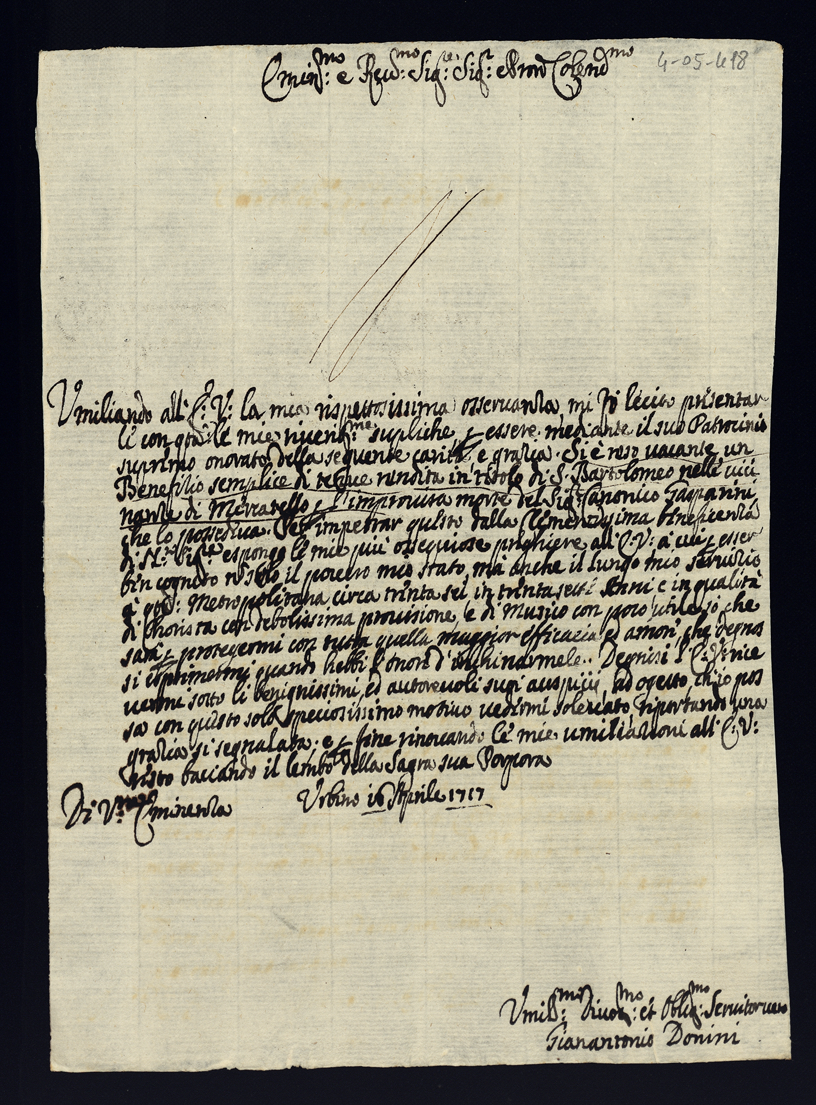 Emin.mo e Rev.mo Sig.re Sig.r e Pron Colend.mo
4-05-418
Umiliando all'E: V: la mia rispettosissima osservanza, mi fo lecito presentar
li con q.ta le mie riverent.me supliche, p essere mediante il suo Patrocinio
suprimo onorato della seguente carità e grazia. Si è reso vacante un
Benefizio semplice di tenue rendita in titolo di S. Bartolomeo nelle vici
nanze di Mercatello p l'improvisa morte del Sig.r Canonico Gasparini
che lo possedeva. Per impetrar questo dalla Clementissima beneficenza
di N.ro Sig.re espongo le mie più ossequiose preghiere all'E: V: a cui p esser
ben cognito non solo il povero mio stato, ma anche il lungo mio servizio
a q.ta: Metropolitana circa trenta sei in trenta sette Anni e in qualità
di Chorista con debolissima provisione, e di Musico con poco utile, so che
sarà p protegermi con tutta quella maggior efficacia ed amore che degno
si esprimermi quando hebbi l'onor d'inchinarmele. Degnisi l'E: V: rice
vermi sotto li benignissimi, ed autorevoli suoi auspicii, ad ogetto ch'io pos
sa con questo solo speciosissimo motivo vedermi solevato riportando una
grazia sì segnalata: e p fine rinovando le mie umiliazioni all'E: V:
resto baciando il lembo della Sagra sua Porpora
Di V.ra Eminenza Urbino 16 Aprile 1717
Umil.mo Divot.mo et Oblig.mo Servitor vero
Gianantonio Donini